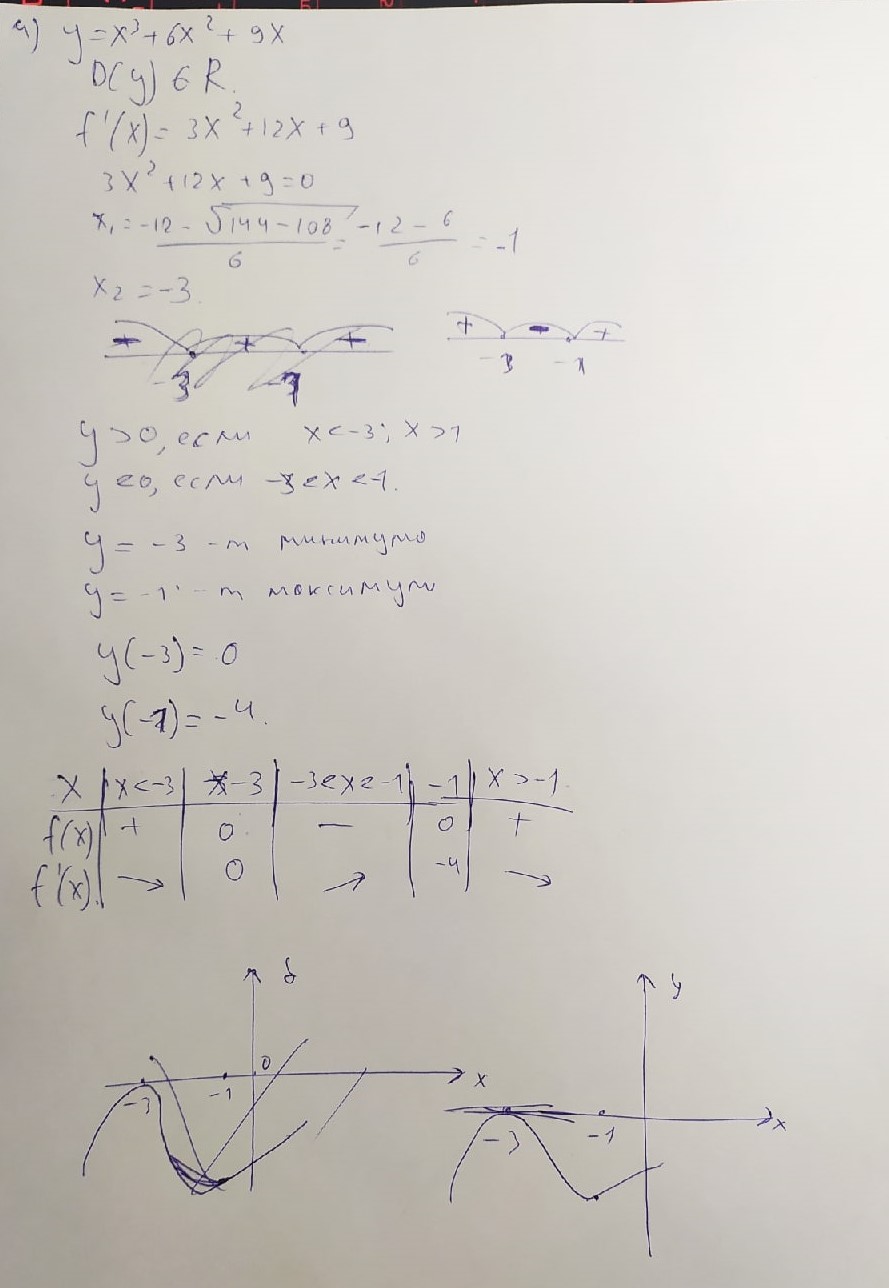 a) y = x³ + 6x² + 9x
D(y) ∈ R.
f'(x) = 3x² + 12x + 9
3x² + 12x + 9 = 0
x₁ = (-12 - √(144 - 108))/6 = (-12 - 6)/6 = -1
x₂ = -3.
+ - +
-3 -1
y > 0, если x < -3; x > 1
y < 0, если -3 < x < -1.
y = -3 - т минимума
y = -1 - т максимум
y(-3) = 0
y(-1) = -4.
x | x < -3 | -3 | -3 < x < -1 | -1 | x > -1
f(x) | + | 0 | — | 0 | +
f'(x) | → | 0 | ↗ | -4 | →
y
0
x
-3 -1
y
x
-3 -1